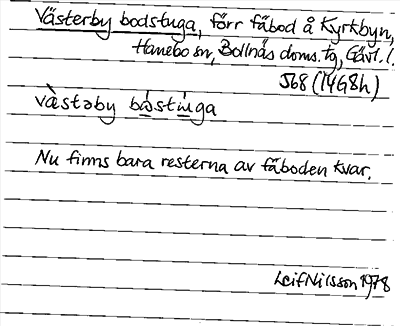 Västerby bodstuga, förr fäbod å Kyrkbyn,
Hanebo sn, Bollnäs doms. tg, Gävl. l.
J68 (14G8h)
vàstəby bɷ̀stɯ́ga
Nu finns bara resterna av fäboden kvar.
Leif Nilsson 1978